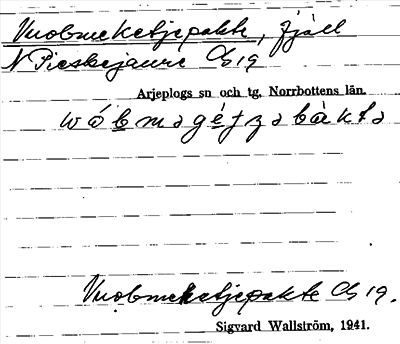 Vuobmeketjepakte, fjäll
N Pieskejaure Ch 19
Arjeplogs sn och tg. Norrbottens län.
wȯ́bmagétzabàkta
Vuobmeketjepakte Ch 19.
Sigvard Wallström, 1941.